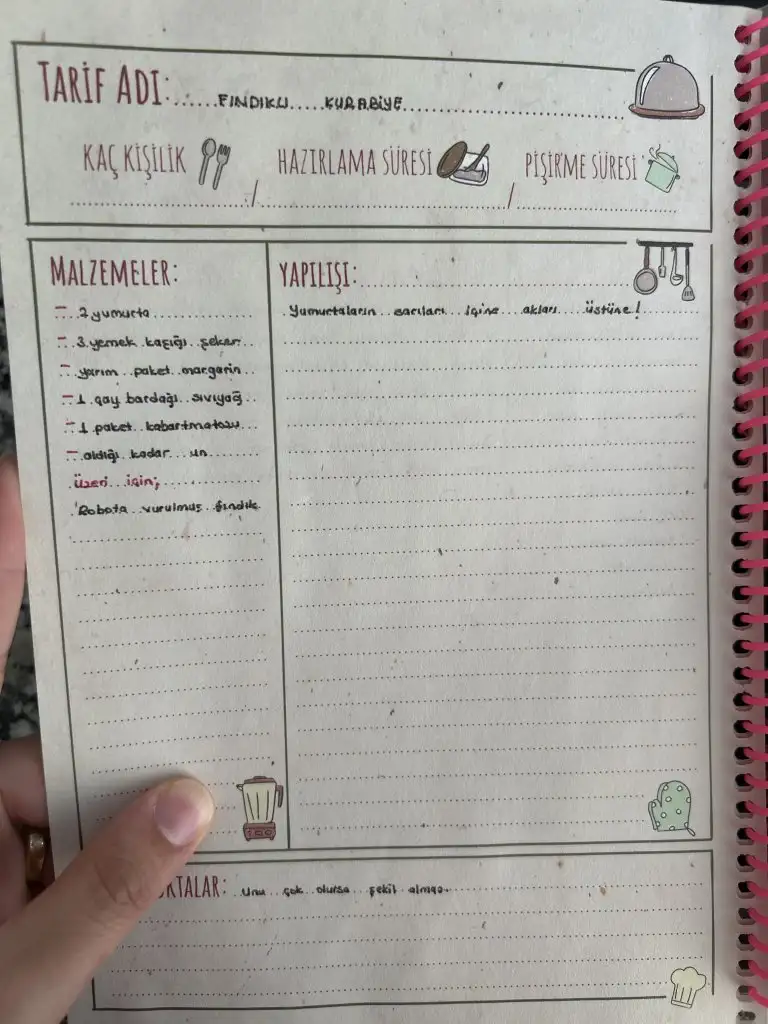 TARİF ADI: FINDIKLI KURABİYE
KAÇ KİŞİLİK / HAZIRLAMA SÜRESİ / PİŞİRME SÜRESİ
MALZEMELER:
- 2 yumurta
- 3 yemek kaşığı şeker
- yarım paket margarin
- 1 çay bardağı sıvıyağ
- 1 paket kabartmatozu
- aldığı kadar un
üzeri için;
Robota vurulmuş fındık
YAPILIŞI:
Yumurtaların sarıları içine akları üstüne!
KTALAR: Unu çok olursa şekil almaz.